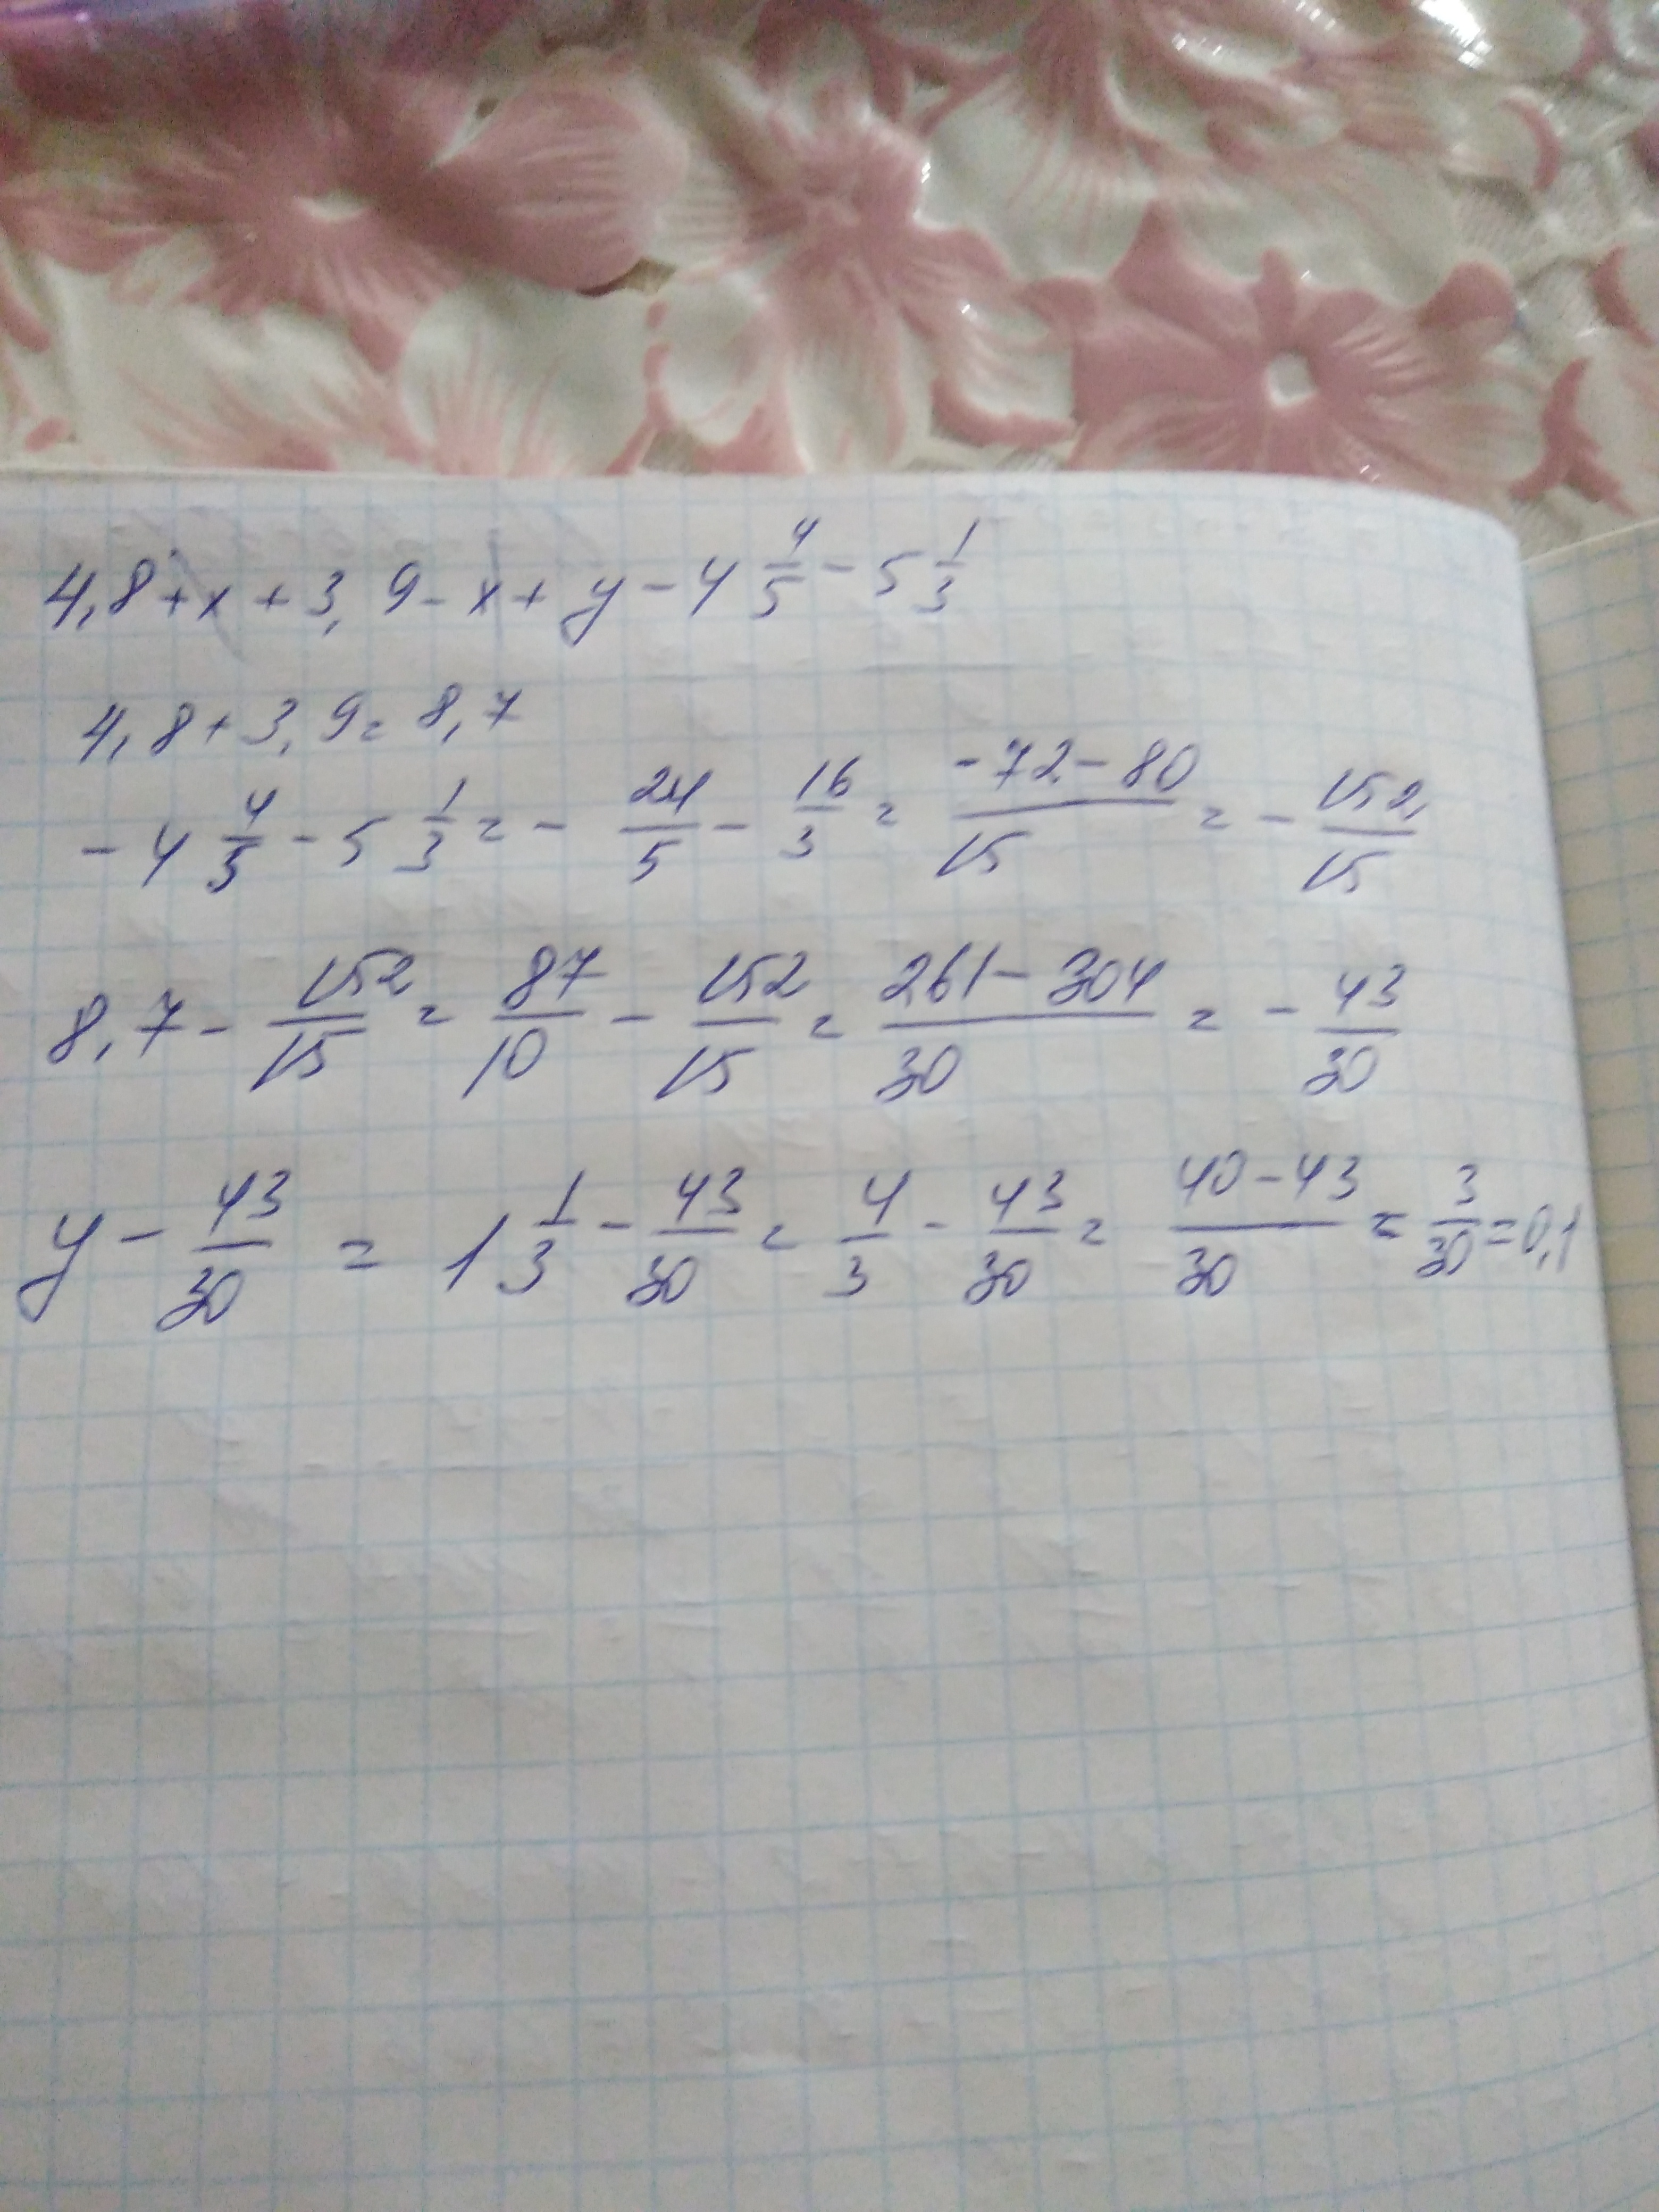 4,8+x+3,9-x+y-4 4/5-5 1/3
4,8+3,9=8,7
-4 4/5-5 1/3=-24/5-16/3=(-72-80)/15=-152/15
8,7-152/15=87/10-152/15=(261-304)/30=-43/30
y-43/30=1 1/3-43/30=4/3-43/30=(40-43)/30=3/30=0,1